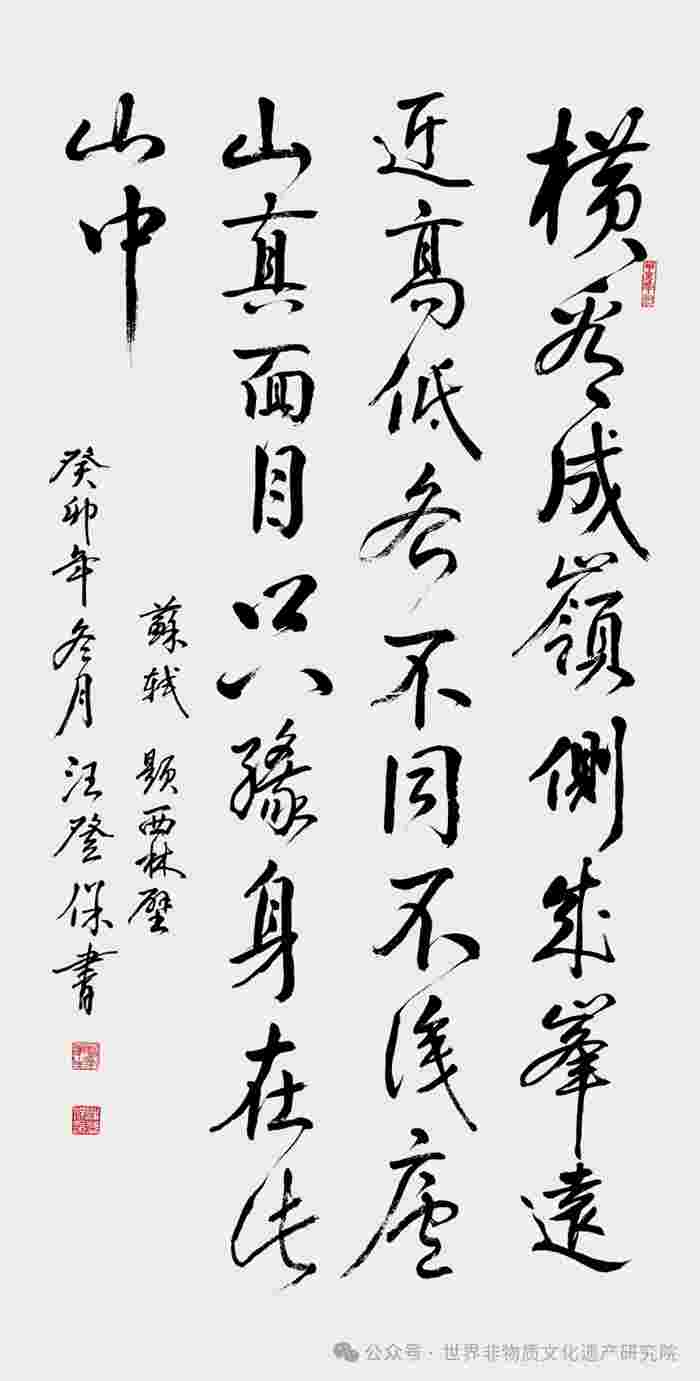 橫看成嶺側成峯遠
近高低各不同不識廬
山真面目只緣身在此
山中
蘇軾 題西林壁
癸卯年冬月汪登保書
公众号·世界非物质文化遗产研究院